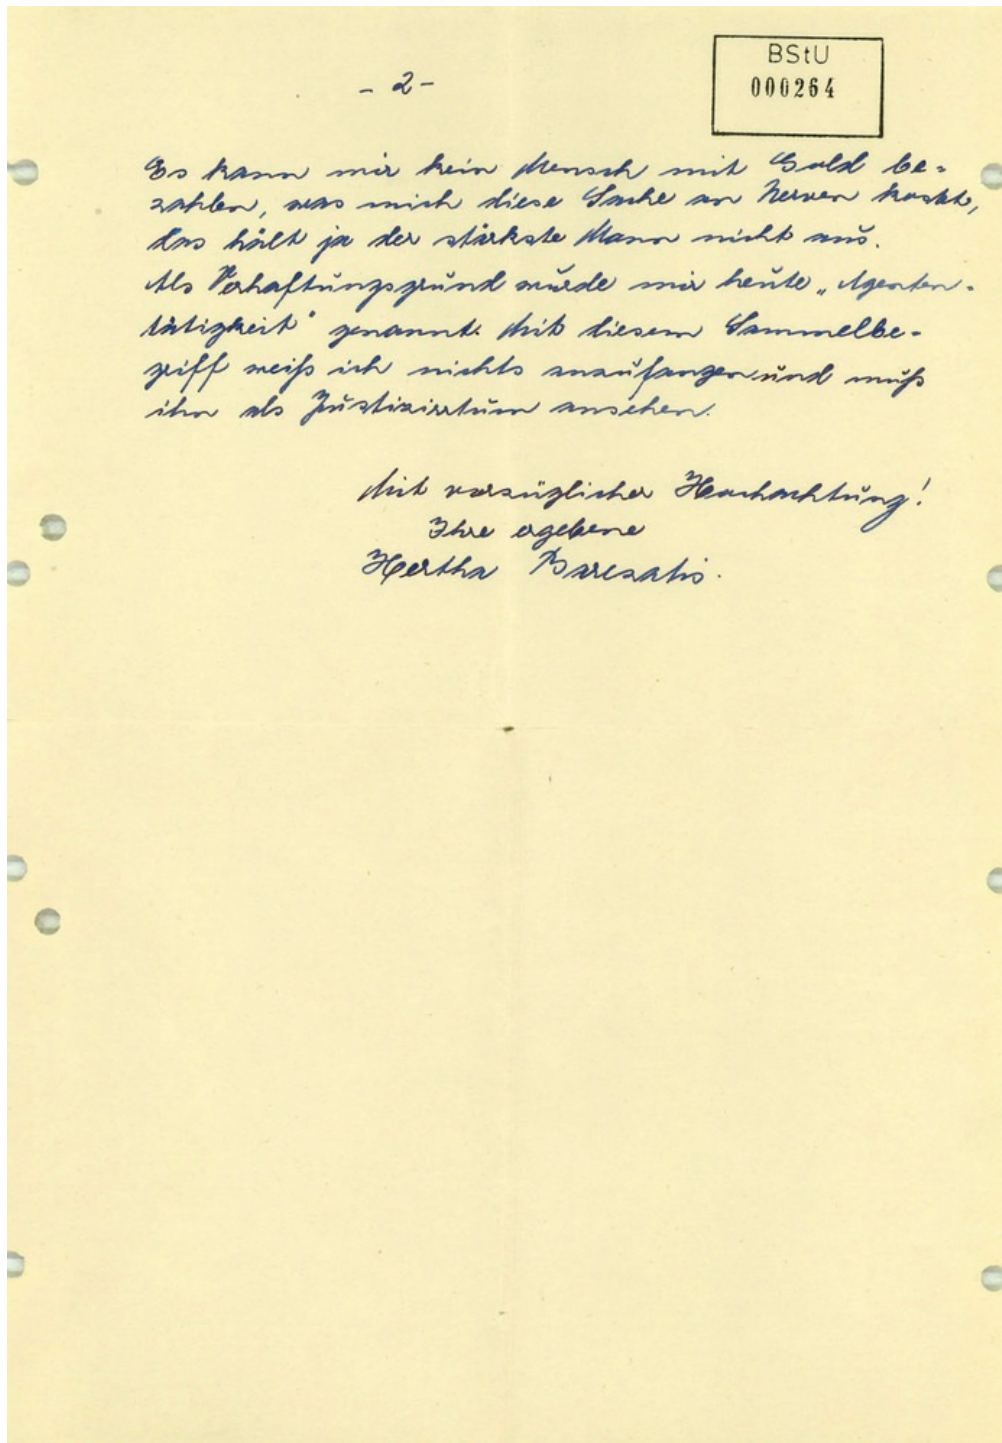 BStU
000264
- 2 -
Es kann mir kein Mensch mit Gold be-
zahlen, was mich diese Sache an Nerven kostet,
das hält ja der stärkste Mann nicht aus.
Als Verhaftungsgrund wurde mir heute „Agenten-
tätigkeit" genannt. Mit diesem Sammelbe-
griff weiß ich nichts anzufangen und muß
ihn als Justizirrtum ansehen.
Mit vorzüglicher Hochachtung!
Ihre ergebene
Hertha Barczatis.